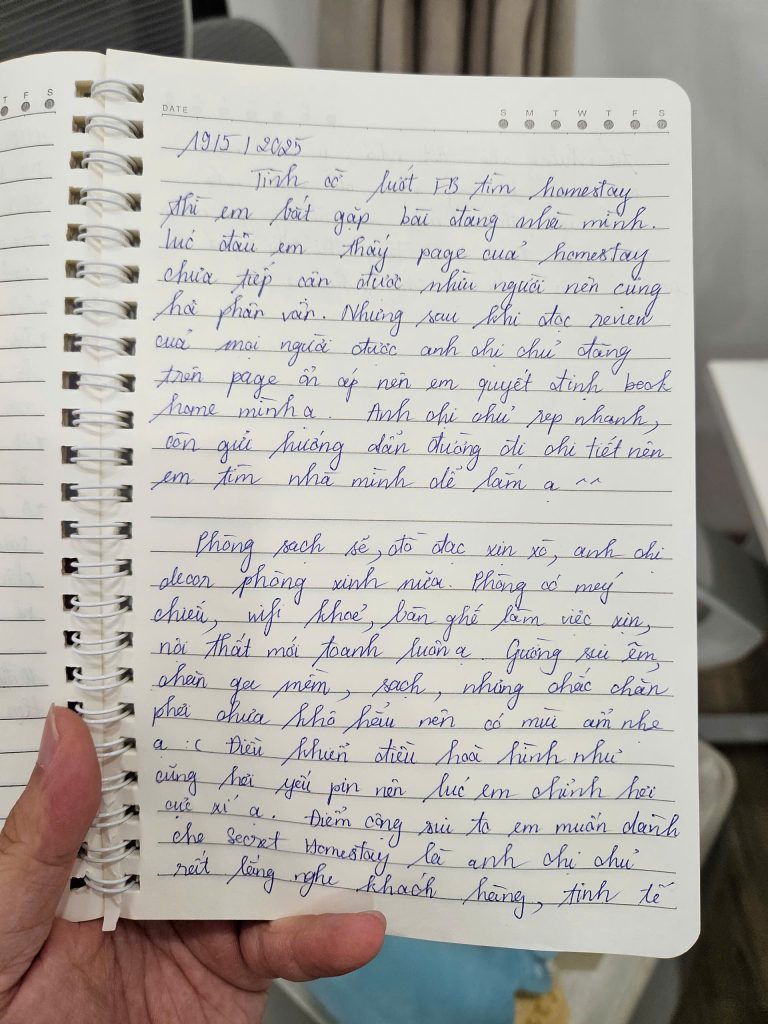 T F S
DATE
S M T W T F S
19/5/2025
Tình cờ lướt FB tìm homestay
thì em bắt gặp bài đăng nhà mình.
lúc đầu em thấy page của homestay
chưa tiếp cận được nhiều người nên cũng
hơi phân vân. Nhưng sau khi đọc review
của mọi người được anh chị chủ đăng
trên page ổn áp nên em quyết định book
home mình ạ. Anh chị chủ rep nhanh,
còn gửi hướng dẫn đường đi chi tiết nên
em tìm nhà mình dễ lắm ạ ^^
Phòng sạch sẽ, đồ đạc xịn xò, anh chị
decor phòng xinh nữa. Phòng có máy
chiếu, wifi khoẻ, bàn ghế làm việc xịn,
nội thất mới toanh luôn ạ. Giường siu êm,
chăn ga mềm, sạch, nhưng chắc chăn
phơi chưa khô hẳn nên có mùi ẩm nhẹ
ạ :( Điều khiển điều hoà hình như
cũng hơi yếu pin nên lúc em chỉnh hơi
cực xí ạ. Điểm cộng siu to em muốn dành
cho Secret Homestay là anh chị chủ
rất lắng nghe khách hàng, tinh tế